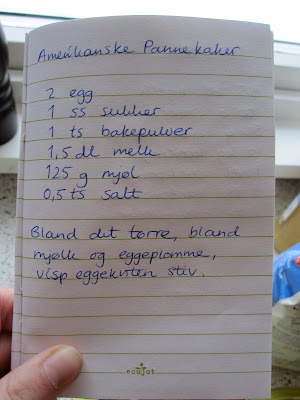 Amerikanske Pannekaker
2 egg
1 ss sukker
1 ts bakepulver
1,5 dl melk
125 g mjøl
0,5 ts salt
Bland det tørre, bland
mjølk og eggeplomme,
visp eggekviten stiv.
ecojot